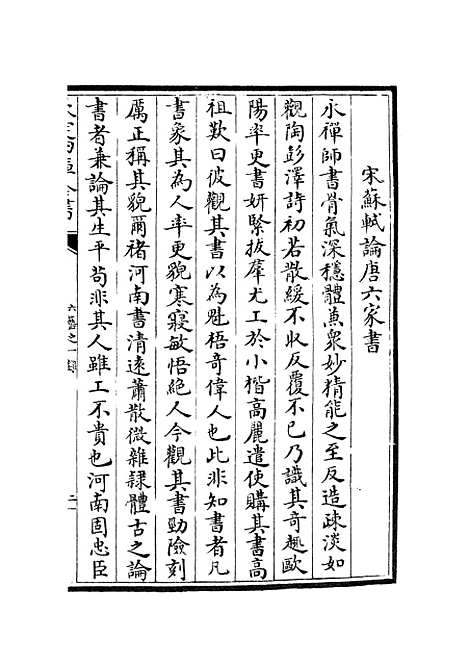 宋蘇軾論唐六家書
永禪師書骨氣深穩體兼衆妙精能之至反造疎淡如
觀陶彭澤詩初若散緩不收反覆不已乃識其奇趣歐
陽率更書妍緊拔羣尤工於小楷高麗遣使購其書高
祖歎曰彼觀其書以為魁梧奇偉人也此非知書者凡
書象其為人率更貌寒寢敏悟絕人今觀其書勁險刻
厲正稱其貌爾褚河南書清遠蕭散微雜隸體古之論
書者兼論其生平苟非其人雖工不貴也河南固忠臣